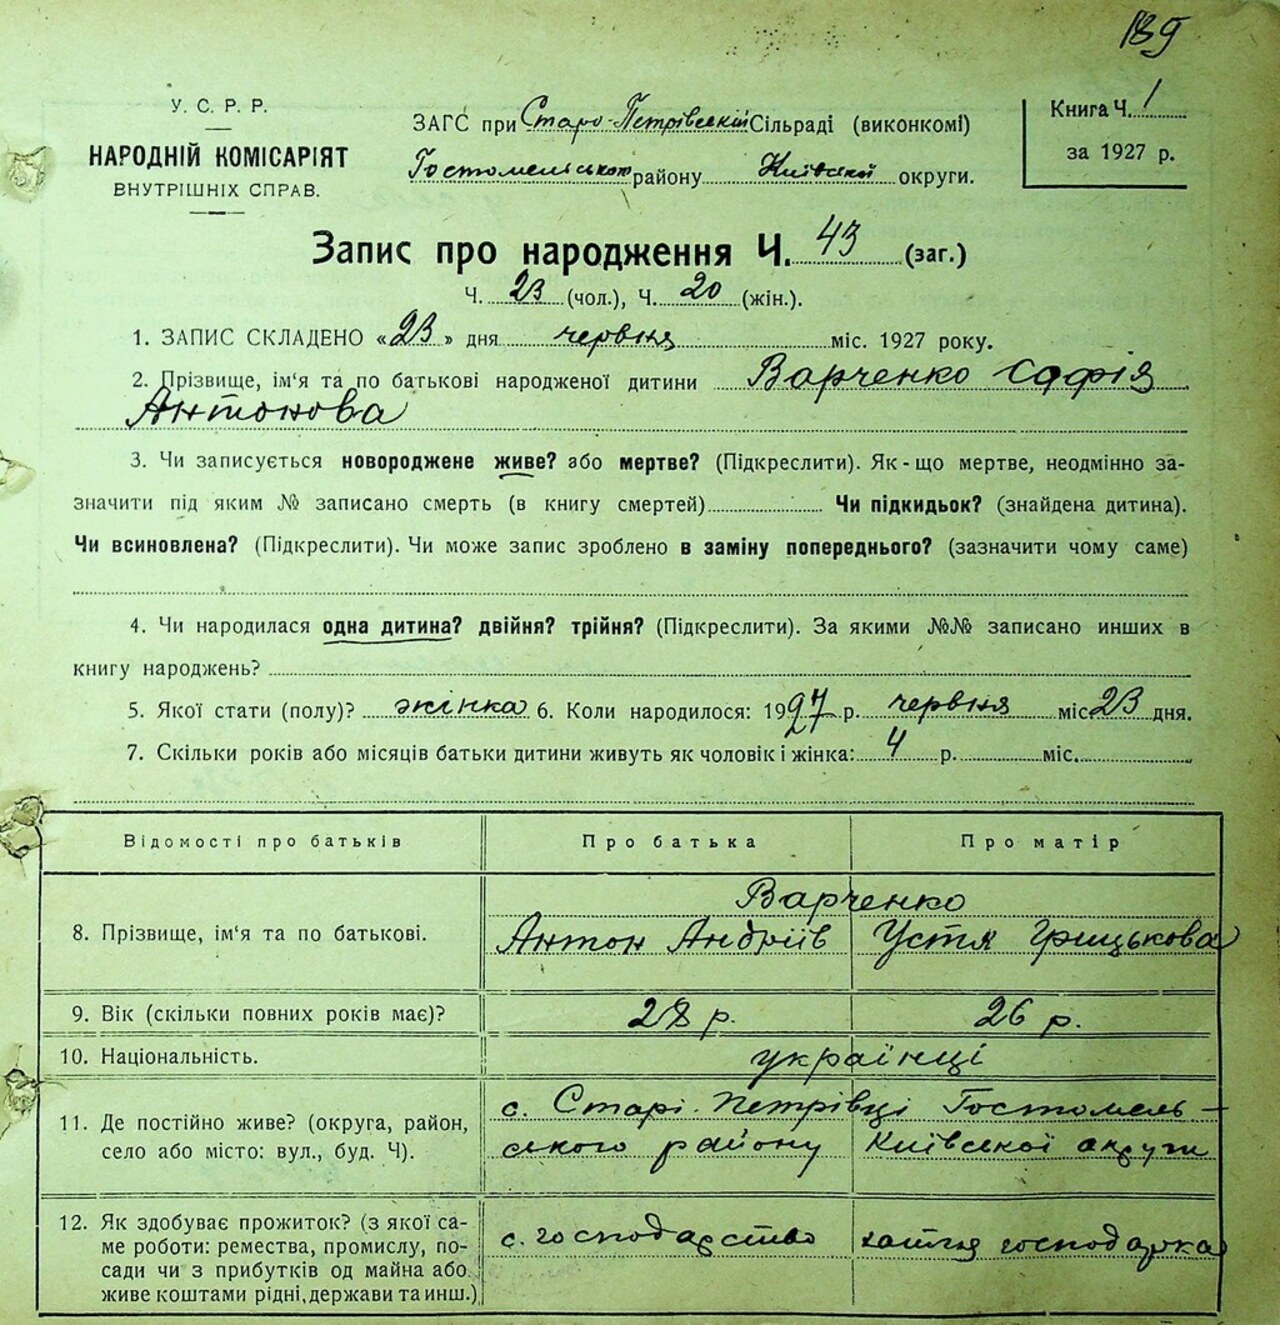 189
У. С. Р. Р.
НАРОДНІЙ КОМІСАРІЯТ
ВНУТРІШНІХ СПРАВ.
ЗАГС при Старо-Петрівській Сільраді (виконкомі)
Гостомельського району Київської округи.
Книга Ч. 1
за 1927 р.
Запис про народження Ч. 43 (заг.)
Ч. 23 (чол.), Ч. 20 (жін.).
1. ЗАПИС СКЛАДЕНО «23» дня червня міс. 1927 року.
2. Прізвище, ім'я та по батькові народженої дитини Варченко Софія
Антонова
3. Чи записується новороджене живе? або мертве? (Підкреслити). Як-що мертве, неодмінно за-
значити під яким № записано смерть (в книгу смертей) Чи підкидьок? (знайдена дитина).
Чи всиновлена? (Підкреслити). Чи може запис зроблено в заміну попереднього? (зазначити чому саме)
4. Чи народилася одна дитина? двійня? трійня? (Підкреслити). За якими №№ записано инших в
книгу народжень?
5. Якої стати (полу)? жінка 6. Коли народилося: 1927 р. червня міс. 23 дня.
7. Скільки років або місяців батьки дитини живуть як чоловік і жінка: 4 р. міс.
Відомості про батьків Про батька Про матір
Варченко
8. Прізвище, ім'я та по батькові. Антон Андріїв Устя Грицькова
9. Вік (скільки повних років має)? 28 р. 26 р.
10. Національність. українці
11. Де постійно живе? (округа, район,
село або місто: вул., буд. Ч).
с. Старі-Петрівці Гостомель-
ського району Київської округи
12. Як здобуває прожиток? (з якої са-
ме роботи: ремества, промислу, по-
сади чи з прибутків од майна або
живе коштами рідні, держави та инш.)
с. господарство хатня господарка